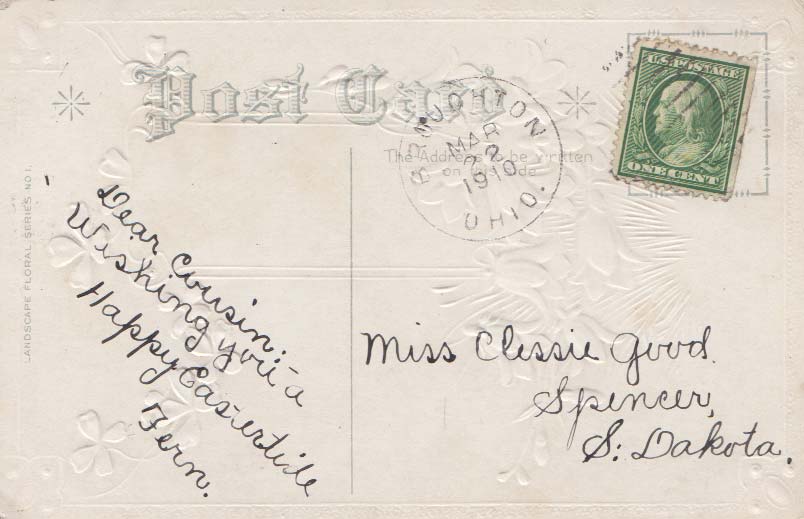 Post Card
The Address to be written
on this side
BROUGHTON
MAR
1910
OHIO.
U.S. POSTAGE
ONE CENT
LANDSCAPE FLORAL SERIES NO 1.
Dear Cousin:
Wishing you a
Happy Eastertide
Fern.
Miss Clessie Good.
Spencer,
S. Dakota.